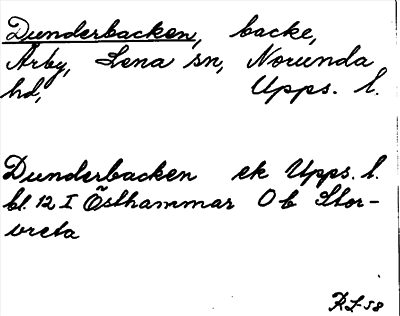 Dunderbacken, backe,
Årby, Lena sn, Norunda
hd, Upps. l.
Dunderbacken ek Upps. l.
bl. 12 I Östhammar Ob Stor-
vreta
RL-58